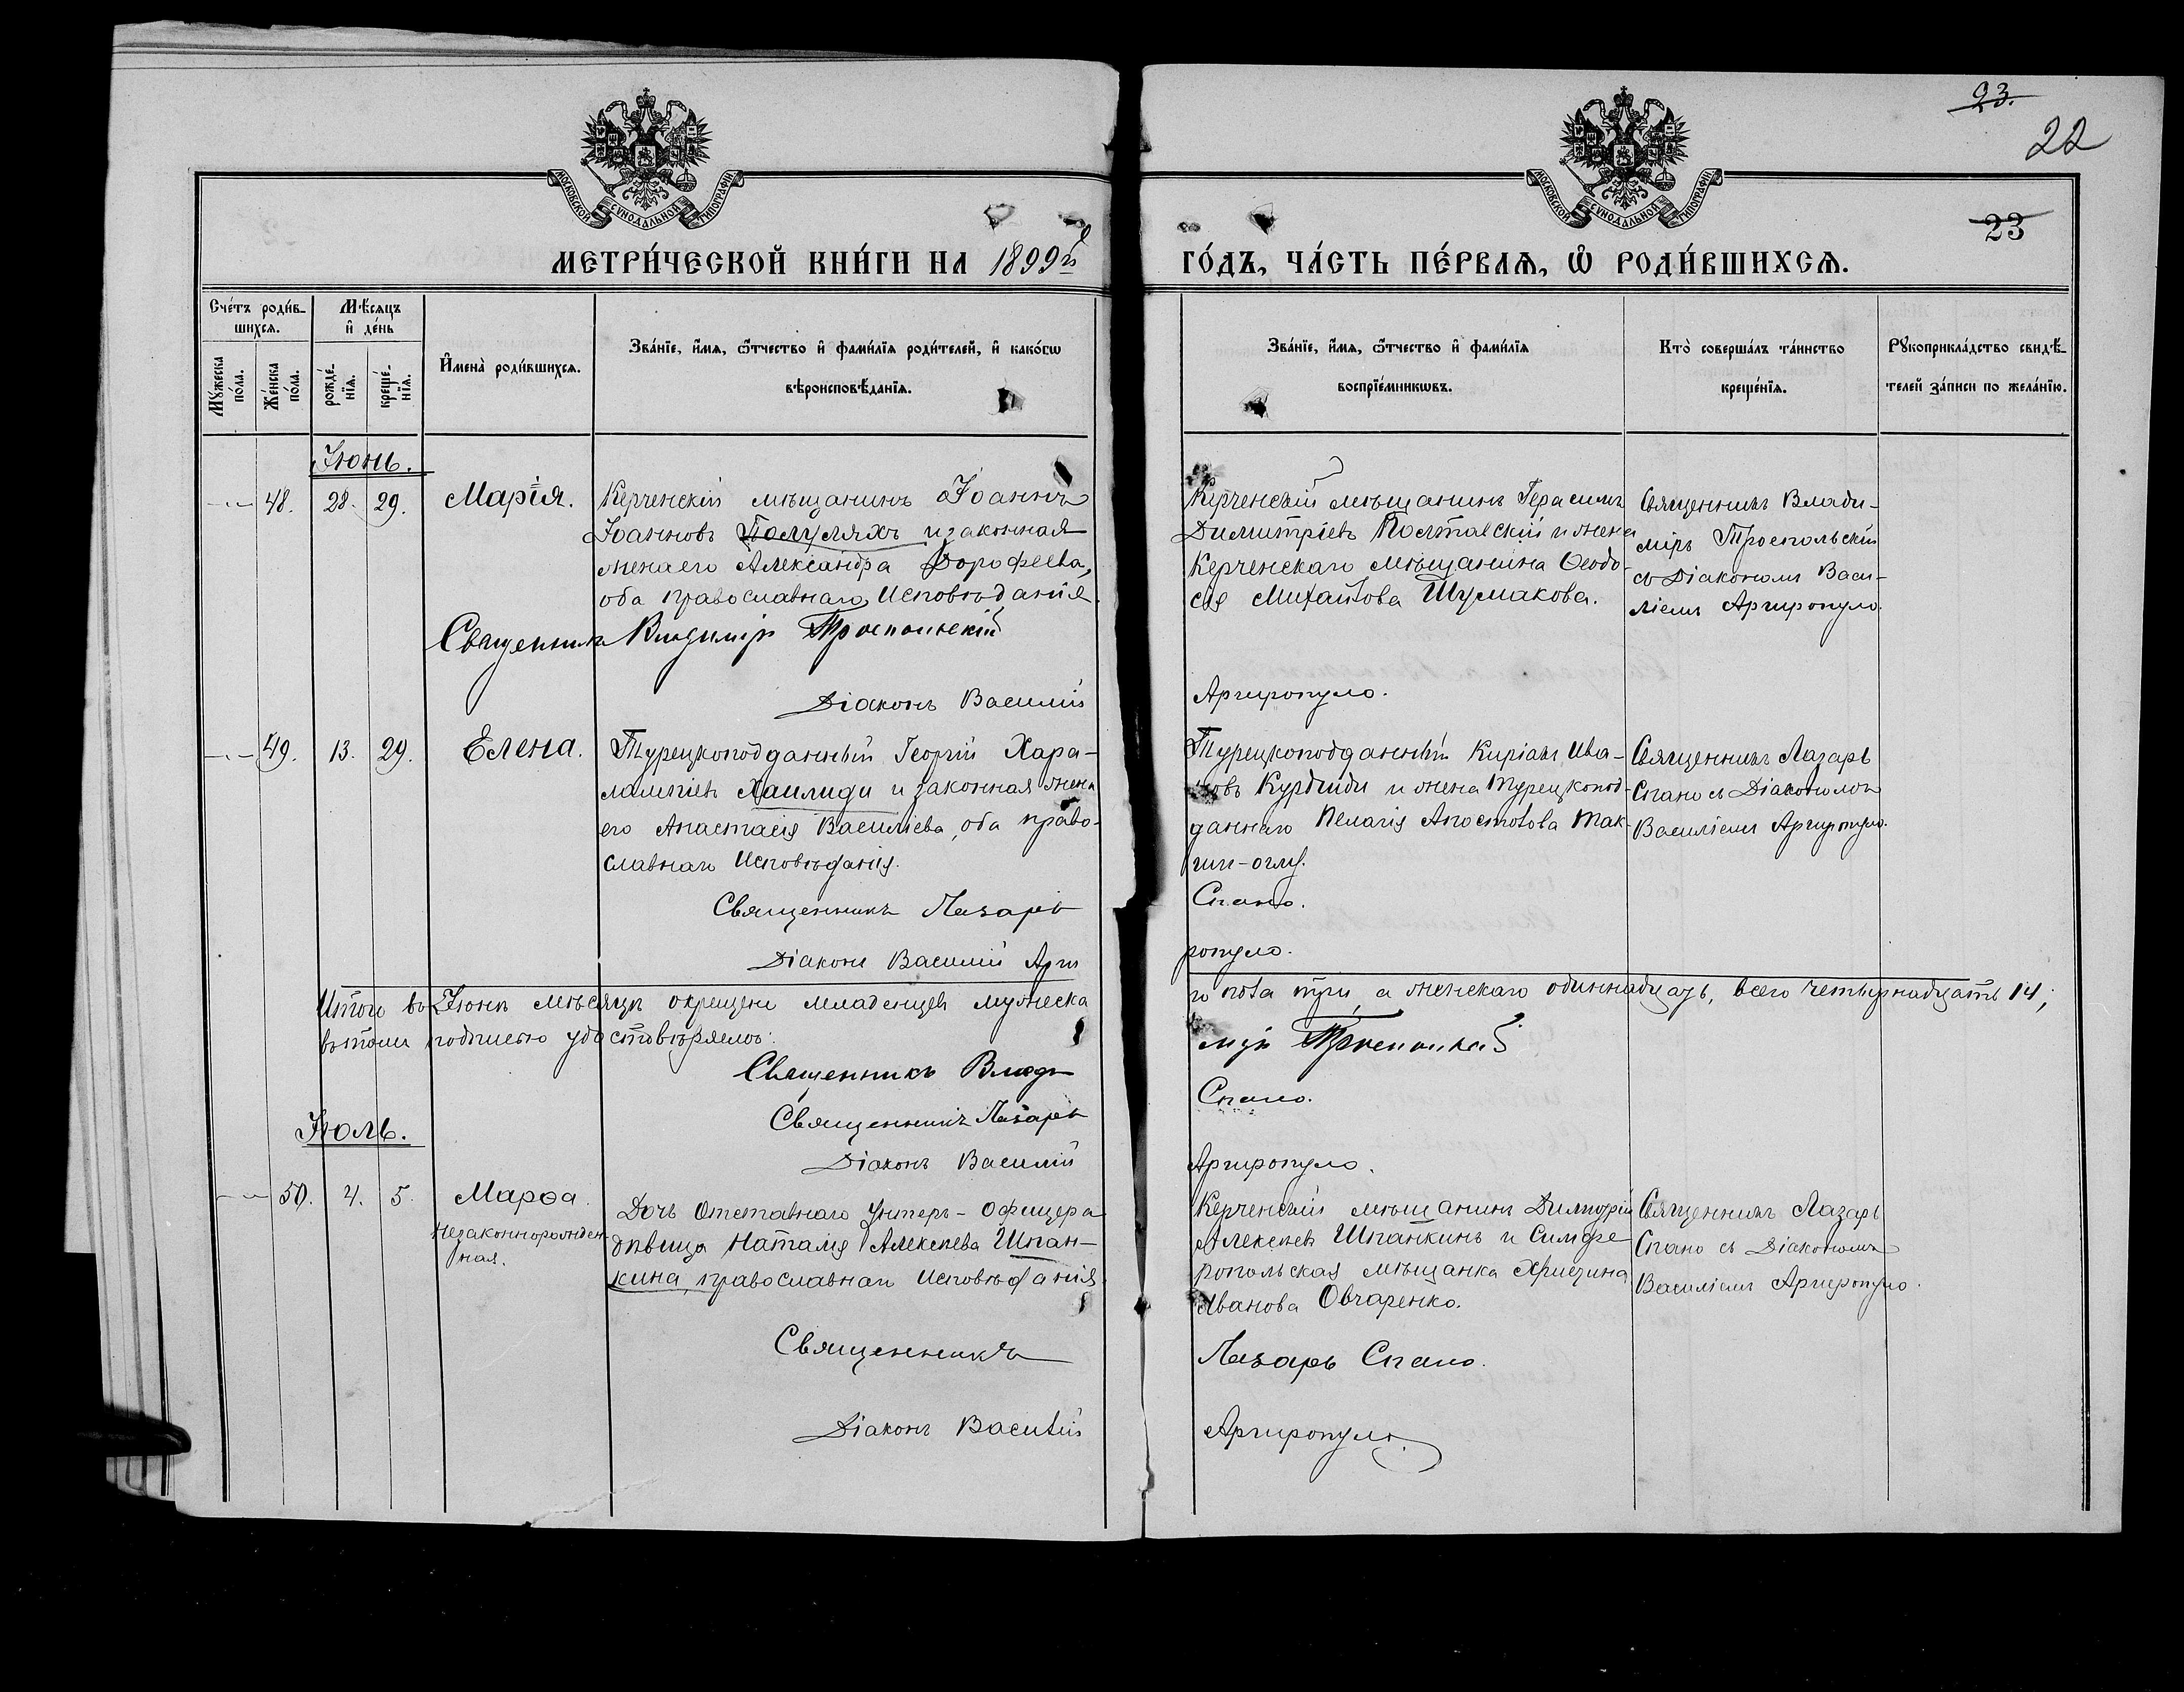 23.
22
23
МОСКОВСКОЙ СѴНОДАЛЬНОЙ ТИПОГРАФІИ
МОСКОВСКОЙ СѴНОДАЛЬНОЙ ТИПОГРАФІИ
МЕТРИ́ЧЕСКОЙ КНИ́ГИ НА 1899й
ГО́ДЪ, ЧА́СТЬ ПЕ́РВАѦ, Ѡ҃ РОДИ́ВШИХСѦ.
Сче́тъ роди́в-
шихсѧ.
Мѣ́сѧцъ
и҆ де́нь
Мꙋ́жеска
по́ла.
Же́нска
по́ла.
рожде́-
нїѧ.
креще́-
нїѧ.
И҆мена̀ роди́вшихсѧ.
Зва́нїе, и҆́мѧ, ѻ҆́тчество и҆ фами́лїѧ роди́телей, и҆ како́гѡ
вѣроисповѣ́данїѧ.
Зва́нїе, и҆́мѧ, ѻ҆́тчество и҆ фами́лїѧ
воспрїе́мникѡвъ.
Кто̀ соверша́лъ та́инство
креще́нїѧ.
Рꙋкоприкла́дство свидѣ́-
телей за́писи по жела́нїю.
Іюнь.
48. 28. 29. Марія.
Керченскій мѣщанинъ Іоаннъ
Іоанновъ Полуляхъ и законная
жена его Александра Дорофеева,
оба православнаго Исповѣданія.
Священникъ Владиміръ Троепольскій
Діаконъ Василій
Керченскій мѣщанинъ Герасимъ
Димитріевъ Полтавскій и жена
Керченскаго мѣщанина Ѳеодо-
сія Михайлова Шумакова.
Аргиропуло.
Священникъ Влади-
міръ Троепольскій
съ Діакономъ Васи-
ліемъ Аргиропуло.
49. 13. 29. Елена.
Турецкоподданный Георгій Хара-
лампіевъ Хаилиди и законная жена
его Анастасія Василіева, оба право-
славнаго Исповѣданія.
Священникъ Лазарь
Діаконъ Василій Арги
Турецкоподданный Киріакъ Ива-
новъ Курдиди и жена Турецкопод-
даннаго Пелагія Апостолова Так-
-оглу.
Спано.
ропуло.
Священникъ Лазарь
Спано съ Діакономъ
Василіемъ Аргиропуло.
Итого въ Іюнѣ мѣсяцѣ окрещено младенцевъ мужеска
го пола три, а женскаго одиннадцать, всего четырнадцать 14,
въ томъ подписью удостовѣряемъ:
Священникъ Влади
міръ Троепольскій
Священникъ Лазарь
Спано.
Діаконъ Василій
Аргиропуло.
Іюль.
50. 4. 5. Марѳа.
Незаконнорожден-
ная.
Дочь Отставнаго Унтеръ-Офицера
дѣвица Наталія Алексѣева Шпан-
кина, православнаго Исповѣданія.
Священникъ
Діаконъ Василій
Керченскій мѣщанинъ Димитрій
Алексѣевъ Шпанкинъ и Симфе-
ропольская мѣщанка Христина
Иванова Овчаренко.
Лазарь Спано.
Аргиропуло.
Священникъ Лазарь
Спано съ Діакономъ
Василіемъ Аргиропуло.